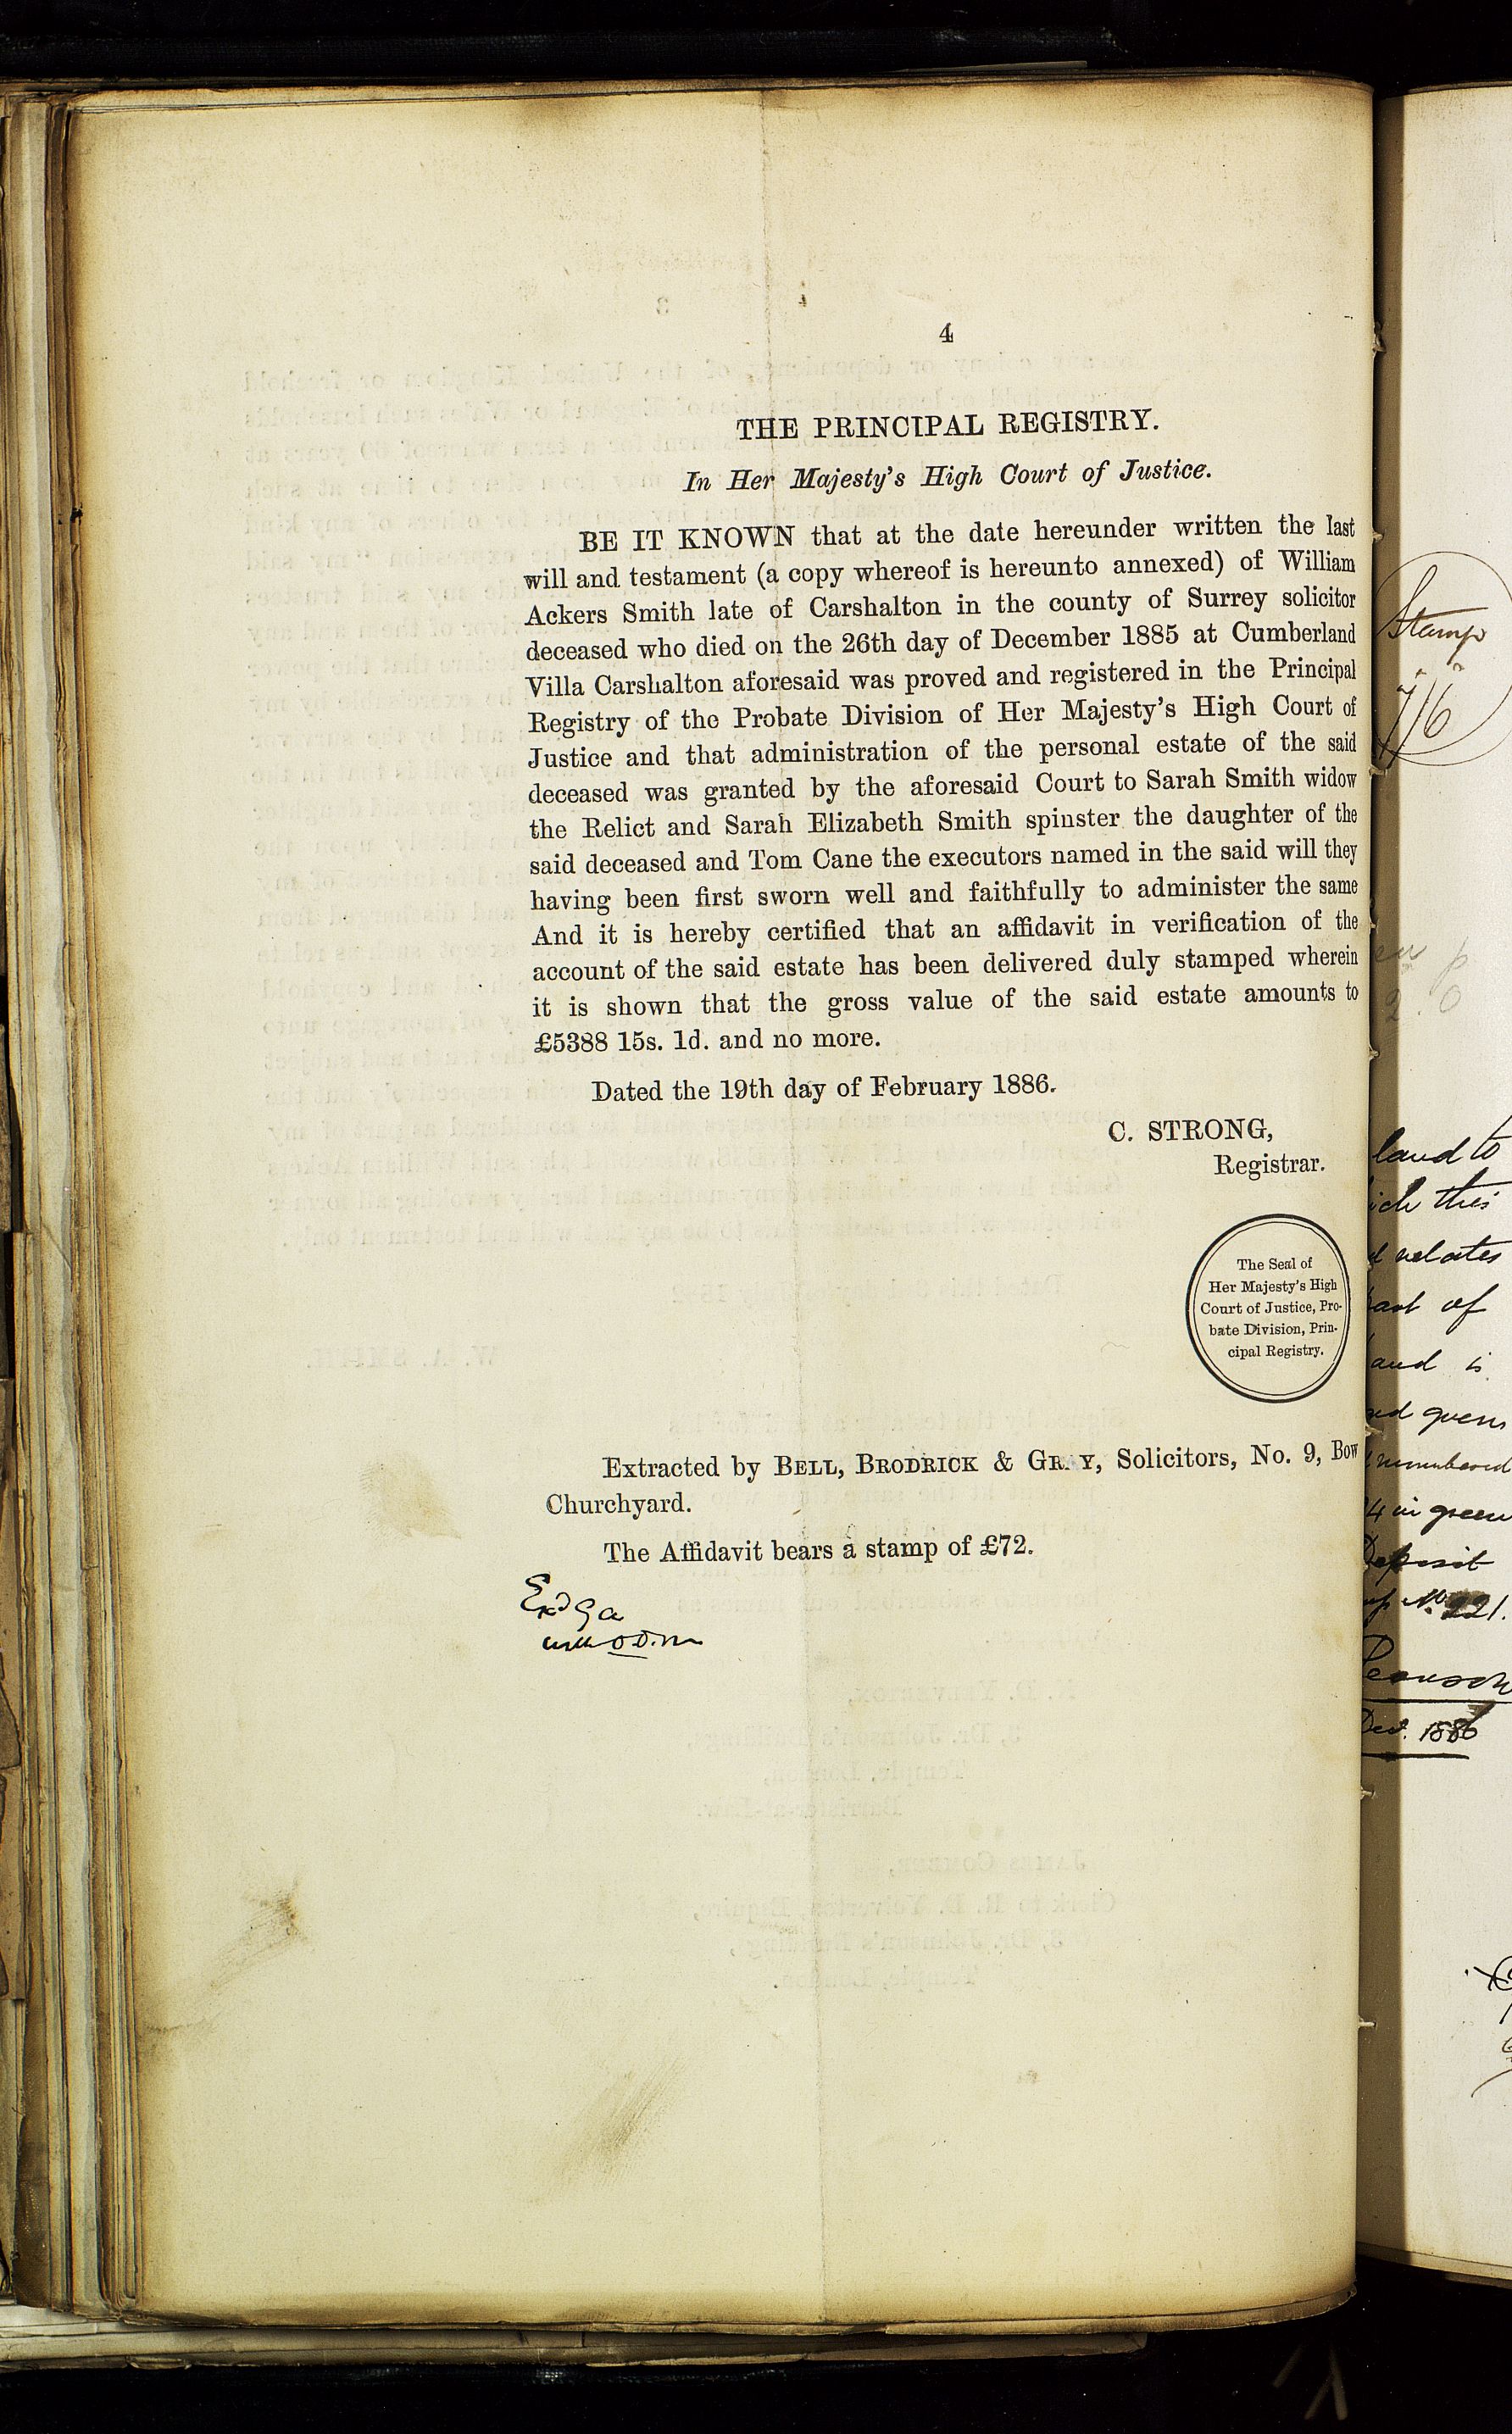 4
THE PRINCIPAL REGISTRY.
In Her Majesty's High Court of Justice.
BE IT KNOWN that at the date hereunder written the last
will and testament (a copy whereof is hereunto annexed) of William
Ackers Smith late of Carshalton in the county of Surrey solicitor
deceased who died on the 26th day of December 1885 at Cumberland
Villa Carshalton aforesaid was proved and registered in the Principal
Registry of the Probate Division of Her Majesty's High Court of
Justice and that administration of the personal estate of the said
deceased was granted by the aforesaid Court to Sarah Smith widow
the Relict and Sarah Elizabeth Smith spinster the daughter of the
said deceased and Tom Cane the executors named in the said will they
having been first sworn well and faithfully to administer the same
And it is hereby certified that an affidavit in verification of the
account of the said estate has been delivered duly stamped wherein
it is shown that the gross value of the said estate amounts to
£5388 15s. 1d. and no more.
Dated the 19th day of February 1886.
C. STRONG,
Registrar.
The Seal of
Her Majesty's High
Court of Justice, Pro-
bate Division, Prin-
cipal Registry.
Extracted by BELL, BRODRICK & GR. Y, Solicitors, No. 9, Bow
Churchyard.
The Affidavit bears a stamp of £72.
Stamp
7/6
land to
this
relates
of
is
numbered
4 in green
Deposit
No. 221.
Dec. 1886